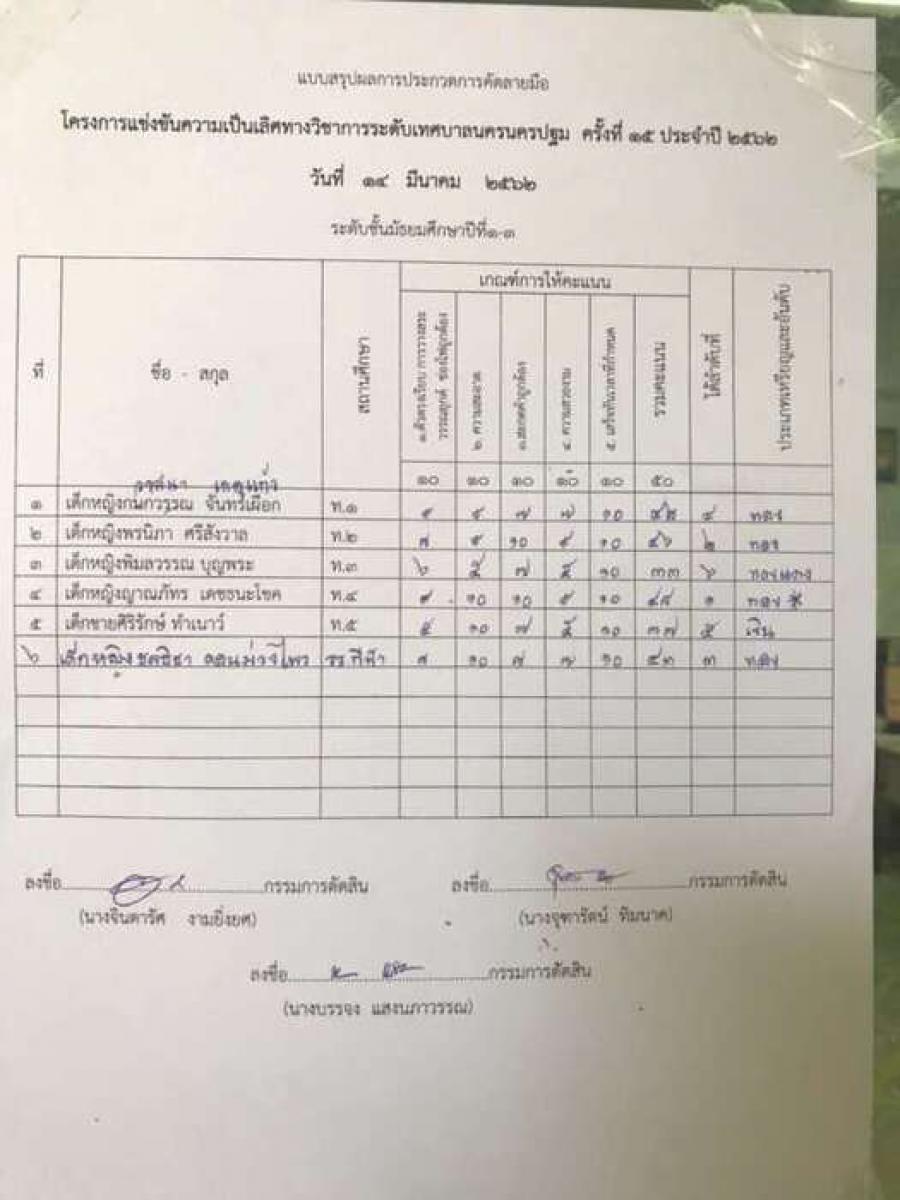 แบบสรุปผลการประกวดการคัดลายมือ
โครงการแข่งขันความเป็นเลิศทางวิชาการระดับเทศบาลนครนครปฐม ครั้งที่ ๑๕ ประจำปี ๒๕๖๒
วันที่ ๑๔ มีนาคม ๒๕๖๒
ระดับชั้นมัธยมศึกษาปีที่๑-๓
ที่ ชื่อ - สกุล สถานศึกษา เกณฑ์การให้คะแนน ได้ลำดับที่ ประเภทเหรียญและอันดับ
๑.ตัวตรงเรียบ การวางสระ วรรณยุกต์ ช่องไฟถูกต้อง
๒. ความสะอาด
๓.สะกดคำถูกต้อง
๔. ความสวยงาม
๕. เสร็จทันเวลาที่กำหนด
รวมคะแนน
๑๐ ๑๐ ๑๐ ๑๐ ๑๐ ๕๐
๑ เด็กหญิงกนกวรรณ จันทร์เผือก ท.๑ ๙ ๙ ๗ ๗ ๑๐ ๔๒ ๔ ทอง
๒ เด็กหญิงพรนิภา ศรีสังวาล ท.๒ ๘ ๙ ๑๐ ๙ ๑๐ ๔๖ ๒ ทอง
๓ เด็กหญิงพิมลวรรณ บุญพระ ท.๓ ๖ ๕ ๗ ๕ ๑๐ ๓๓ ๖ ทองแดง
๔ เด็กหญิงญาณภัทร เดชธนะโชค ท.๔ ๙ ๑๐ ๑๐ ๙ ๑๐ ๔๘ ๑ ทอง *
๕ เด็กชายศิริรักษ์ ทำเนาว์ ท.๕ ๕ ๑๐ ๗ ๕ ๑๐ ๓๗ ๕ เงิน
๖ เด็กหญิง ๑๐ ๗ ๗ ๑๐ ๔๓ ๓ ทอง
ลงชื่อ กรรมการตัดสิน ลงชื่อ กรรมการตัดสิน
(นางจินดารัศ งามยิ่งยศ) (นางจุฑารัตน์ ทิมนาค)
ลงชื่อ กรรมการตัดสิน
(นางบรรจง แสงนภาวรรณ)